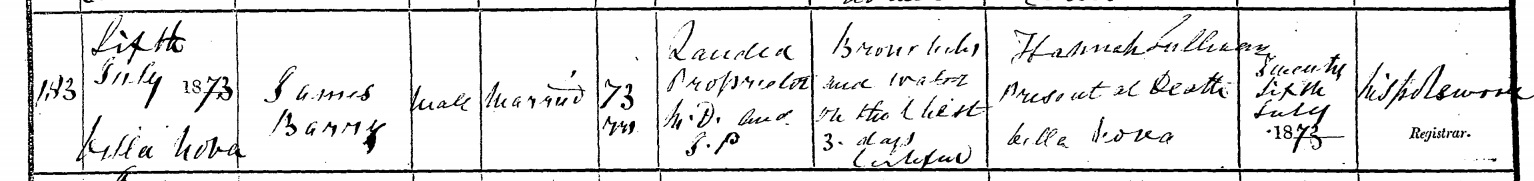 183
Fifth
July 1873
Villa Nova
James
Barry
Male
Married
73
yrs
Landed
Proprietor
M.D. and
J.P
Bronchitis
and water
on the Chest
3 days
Certified
Hannah Sullivan
Present at Death
Villa Nova
Twenty
Fifth
July
1873
Registrar.